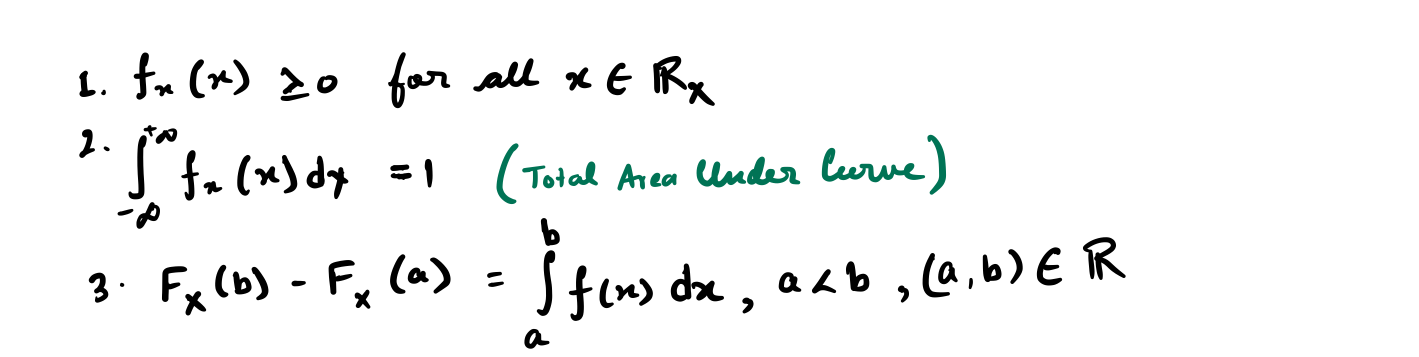 1. fₓ(x) ≥ 0 for all x ∈ ℝₓ
2. ∫₋∞⁺∞ fₓ(x) dx = 1 (Total Area Under Curve)
3. Fₓ(b) - Fₓ(a) = ∫ₐᵇ f(x) dx, a < b, (a, b) ∈ ℝ